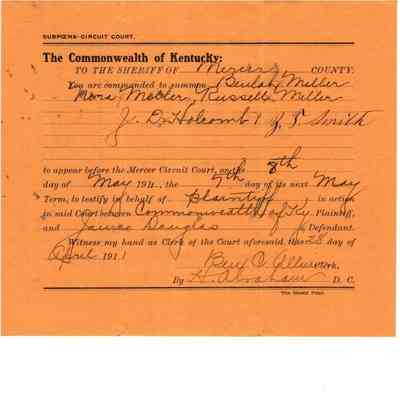 SUBPŒNA-CIRCUIT COURT.
The Commonwealth of Kentucky:
TO THE SHERIFF OF Mercer COUNTY:
You are commanded to summon Beulah Miller
Miller, Russell Miller
J. D. Holcomb & J. T. Smith
to appear before the Mercer Circuit Court, on the 8th
day of May 191 , the 7th day of its next May
Term, to testify in behalf of Plaintiff in action
in said Court between Commonwealth of Ky Plaintiff,
and James Douglas Defendant.
Witness my hand as Clerk of the Court aforesaid, this 28 day of
April 1911
Ben C. Allin Clerk.
By H. Abraham D. C.
The Herald Print.